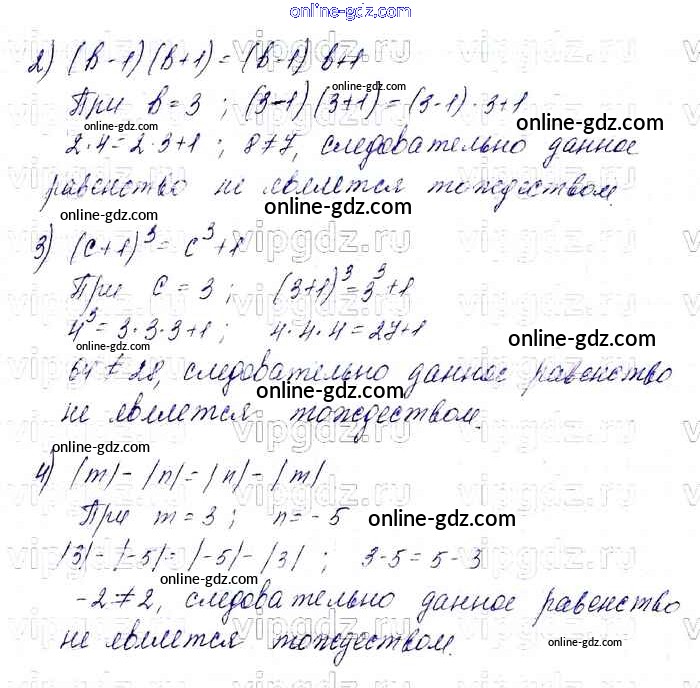 online-gdz.com
2) (b-1)(b+1)=(b-1)b+1
online-gdz.com
При b=3; (3-1)(3+1)=(3-1)·3+1
online-gdz.com
2·4=2·3+1; 8≠7, следовательно данное
равенство не является тождеством.
online-gdz.com online-gdz.com
3) (c+1)³=c³+1
При c=3; (3+1)³=3³+1
4³=3·3·3+1; 4·4·4=27+1
online-gdz.com
64≠28, следовательно данное равенство
online-gdz.com
не является тождеством.
online-gdz.com
4) |m|-|n|=|n|-|m|
При m=3; n=-5 online-gdz.com
|3|-|-5|=|-5|-|3|; 3-5=5-3
online-gdz.com online-gdz.com
-2≠2, следовательно данное равенство
не является тождеством.
online-gdz.com online-gdz.com